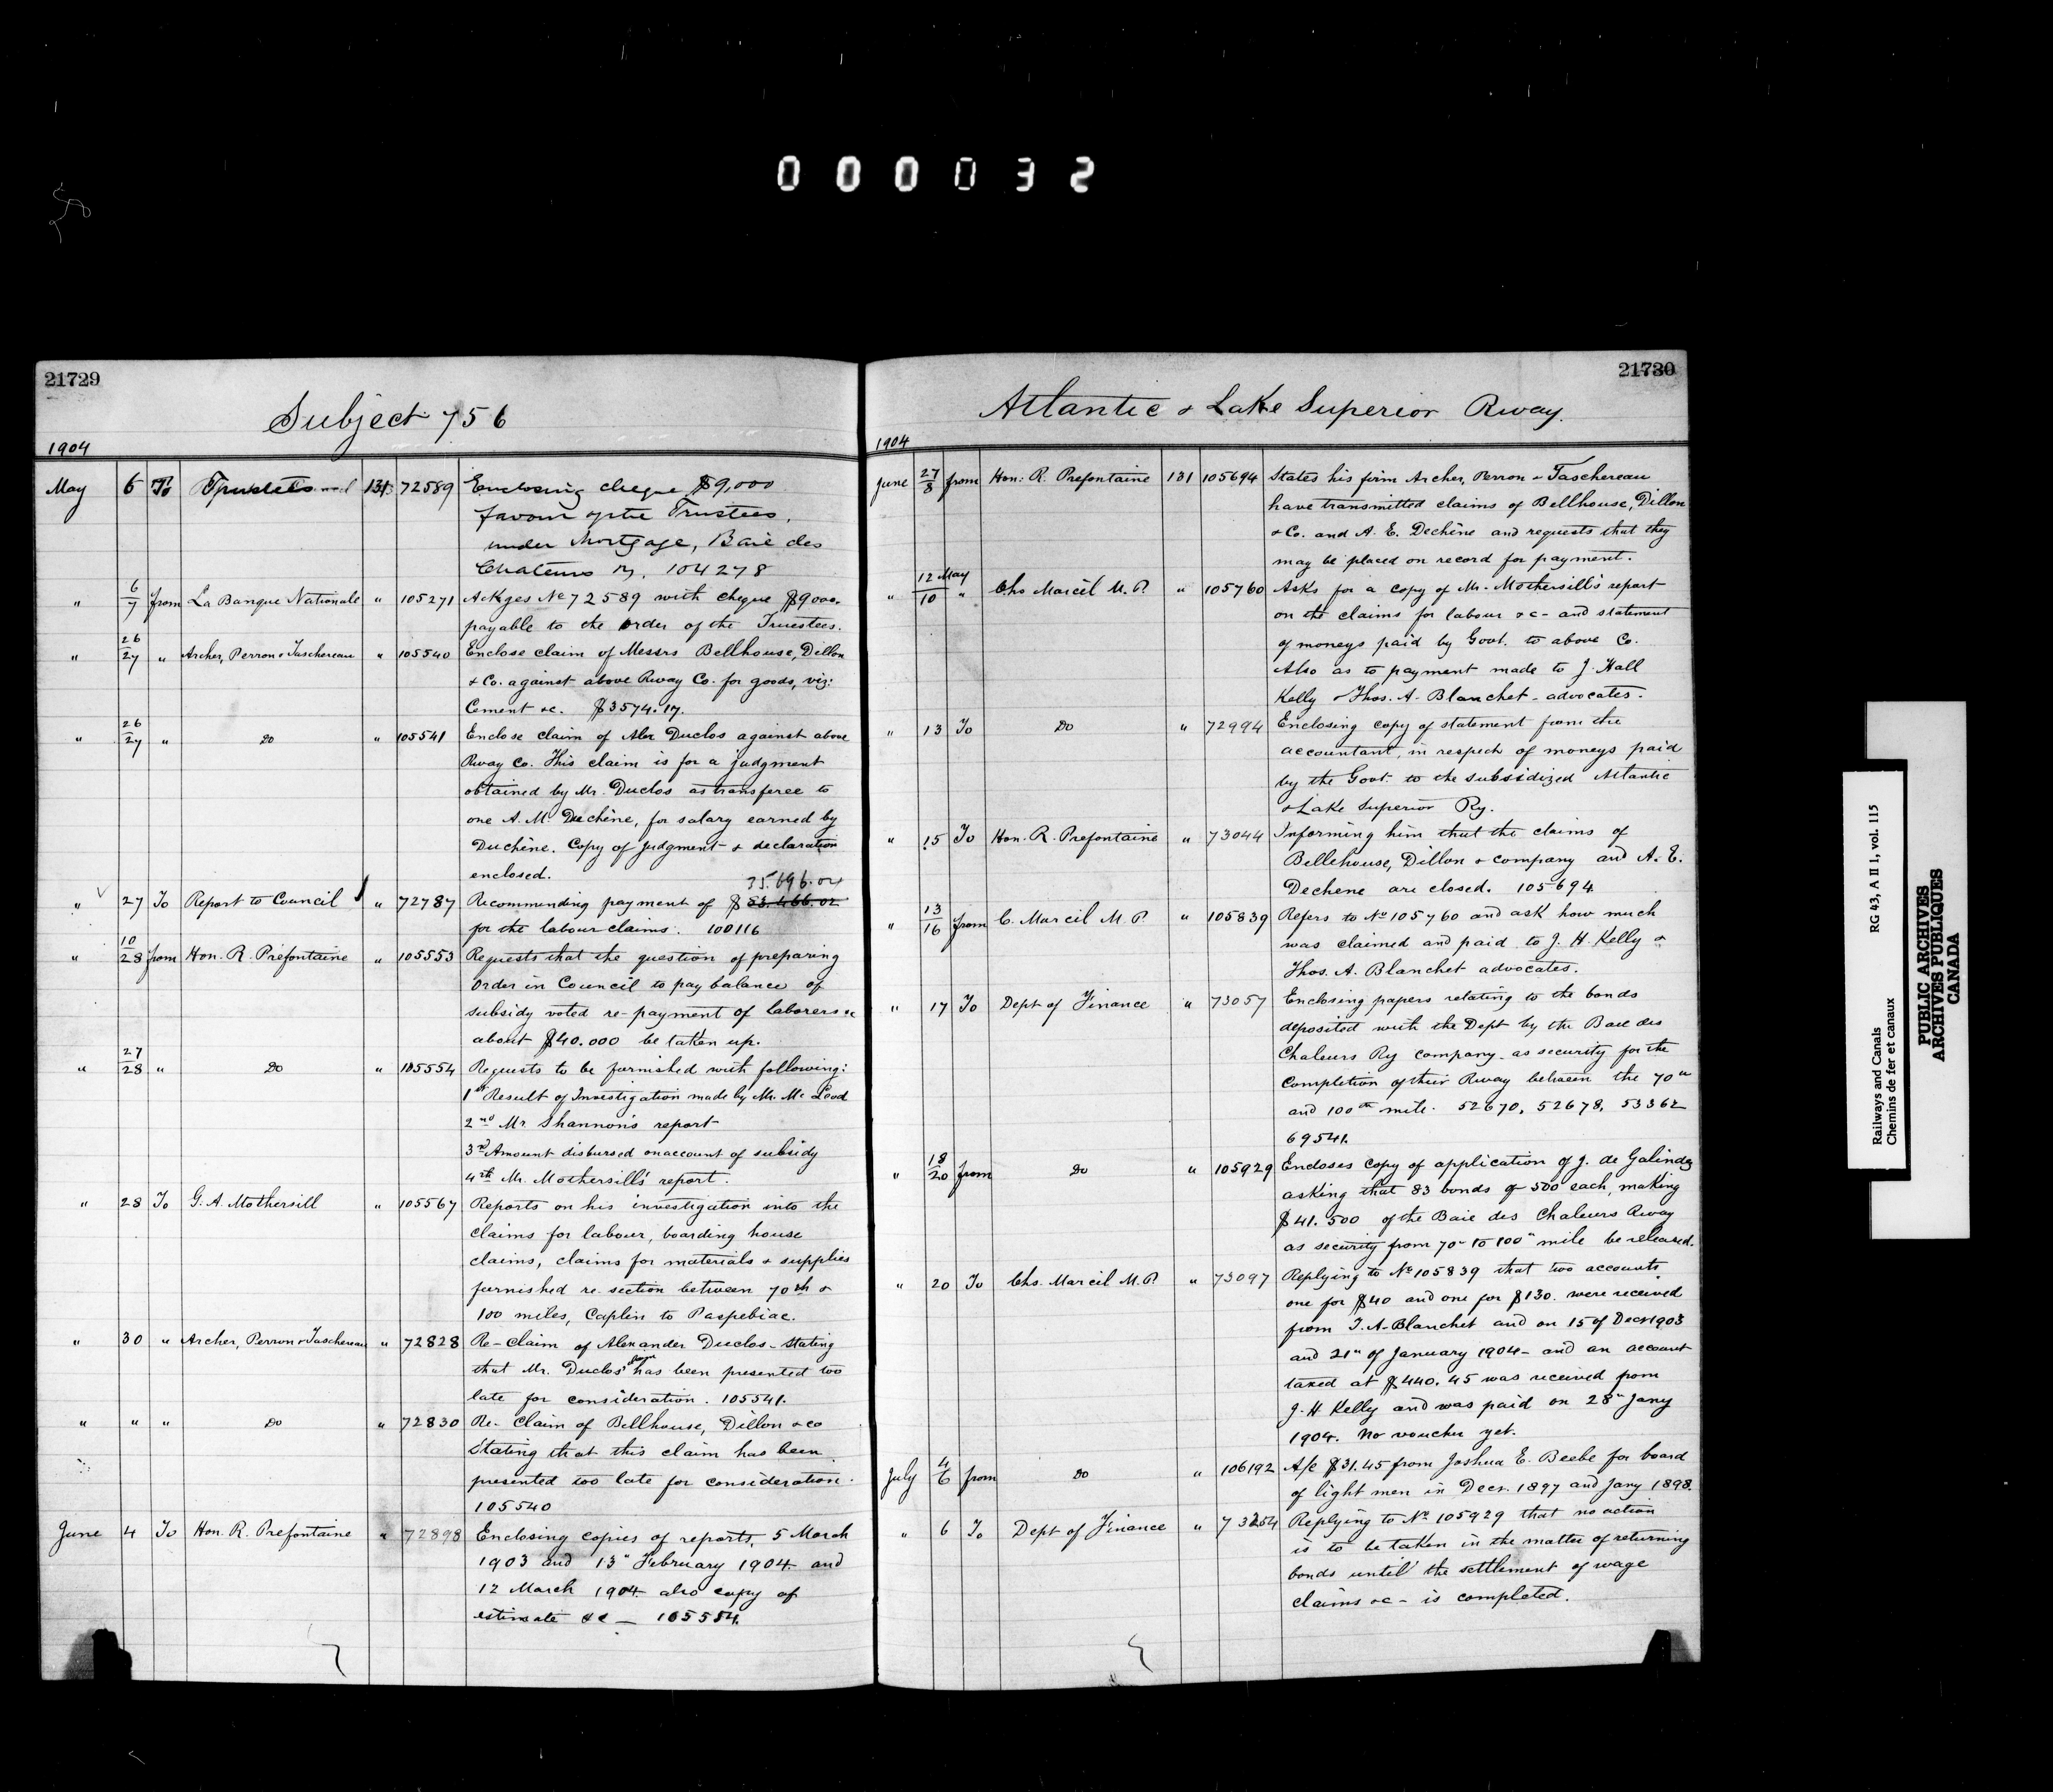 000032
21729
Subject 756
1904
May 6 To Trustees 131 72589 Enclosing cheque $9,000
favour of the Trustees,
under Mortgage, Baie des
Chaleurs Ry. 104278
" 6/7 from La Banque Nationale " 105271 Ackges No 72589 with cheque $9000.
payable to the order of the Truestees.
" 26/27 " Archer, Perron & Taschereau " 105540 Enclose claim of Messrs Bellhouse, Dillon
& Co. against above Rway Co. for goods, viz:
Cement &c. $3574.17.
" 26/27 " Do " 105541 Enclose claim of Alex Duclos against above
Rway Co. This claim is for a judgment
obtained by Mr. Duclos as transferee to
one A. M. Dechène, for salary earned by
Duchène. Copy of judgment & declaration
enclosed.
35.696.04
" 27 To Report to Council " 72787 Recommending payment of $ 53.466.02
for the labour claims. 100116
" 10/28 from Hon. R. Préfontaine " 105553 Requests that the question of preparing
Order in Council to pay balance of
subsidy voted re-payment of laborers &c
about $40.000 be taken up.
" 27/28 " Do " 105554 Requests to be furnished with following:
1st Result of Investigation made by Mr. McLeod
2nd Mr Shannon's report
3rd Amount disbursed on account of subsidy
4th Mr. Mothersill's report.
" 28 To G. A. Mothersill " 105567 Reports on his investigation into the
claims for labour, boarding house
claims, claims for materials & supplies
furnished re section between 70th &
100 miles, Caplin to Paspebiac.
" 30 " Archer, Perron & Taschereau " 72828 Re-Claim of Alexander Duclos - stating
that Mr. Duclos' claim has been presented too
late for consideration. 105541.
" " " Do " 72830 Re- Claim of Bellhouse, Dillon & co
Stating that this claim has been
presented too late for consideration.
105540
June 4 To Hon. R. Prefontaine " 72898 Enclosing copies of reports, 5 March
1903 and 13" February 1904 and
12 March 1904 also copy of
estimate &c — 105554.
21730
Atlantic & Lake Superior Rway.
1904
June 27/8 from Hon: R. Prefontaine 131 105694 States his firm Archer, Perron & Taschereau
have transmitted claims of Bellhouse, Dillon
& Co. and A. E. Dechène and requests that they
may be placed on record for payment.
" 12 May/10 " Chs Marcil M.P. " 105760 Asks for a copy of Mr. Mothersill's report
on the claims for labour &c- and statement
of moneys paid by Govt. to above Co.
Also as to payment made to J. Hall
Kelly & Thos. A. Blanchet - advocates.
" 13 To Do " 72994 Enclosing copy of statement from the
accountant, in respect of moneys paid
by the Govt. to the subsidized Atlantic
& Lake Superior Ry.
" 15 To Hon. R. Prefontaine " 73044 Informing him that the claims of
Bellehouse, Dillon & company and A. E.
Dechene are closed. 105694
" 13/16 from C. Marcil M.P. " 105839 Refers to No 105760 and ask how much
was claimed and paid to J. H. Kelly &
Thos. A. Blanchet advocates.
" 17 To Dept of Finance " 73057 Enclosing papers relating to the bonds
deposited with the Dept by the Baie des
Chaleurs Ry company as security for the
completion of their Rway between the 70th
and 100th mile. 52670, 52678, 53362
69541.
" 18/20 from Do " 105929 Encloses copy of application of J. de Galindez
asking that 83 bonds of 500 each, making
$41.500 of the Baie des Chaleurs Rway
as security from 70" to 100" mile be released.
" 20 To Chs. Marcil M.P. " 73097 Replying to No 105839 that two accounts
one for $40 and one for $130. were received
from T. A. Blanchet and on 15 of Decr 1903
and 21" of January 1904 - and an account
taxed at $440.45 was received from
J. H Kelly and was paid on 28" Jany
1904. No voucher yet.
July 4/6 from Do " 106192 A/c $31.45 from Joshua E. Beebe for board
of light men in Decr. 1897 and Jany 1898.
" 6 To Dept of Finance " 73254 Replying to No 105929 that no action
is to be taken in the matter of returning
bonds until the settlement of wage
claims &c - is completed.
RG 43, A II 1, vol. 115
Railways and Canals
Chemins de fer et canaux
PUBLIC ARCHIVES
ARCHIVES PUBLIQUES
CANADA